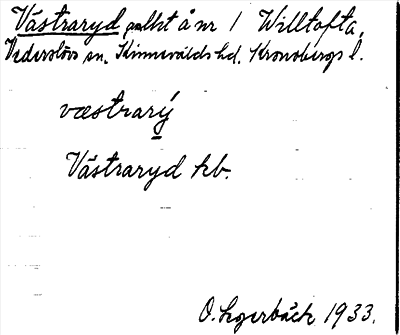 Västraryd, allst å nr 1 Willtofta,
Vederslövs sn. Kinnevalds hd. Kronobergs l.
væstrarý
Västraryd kb.
O. Lagerbäck 1933.